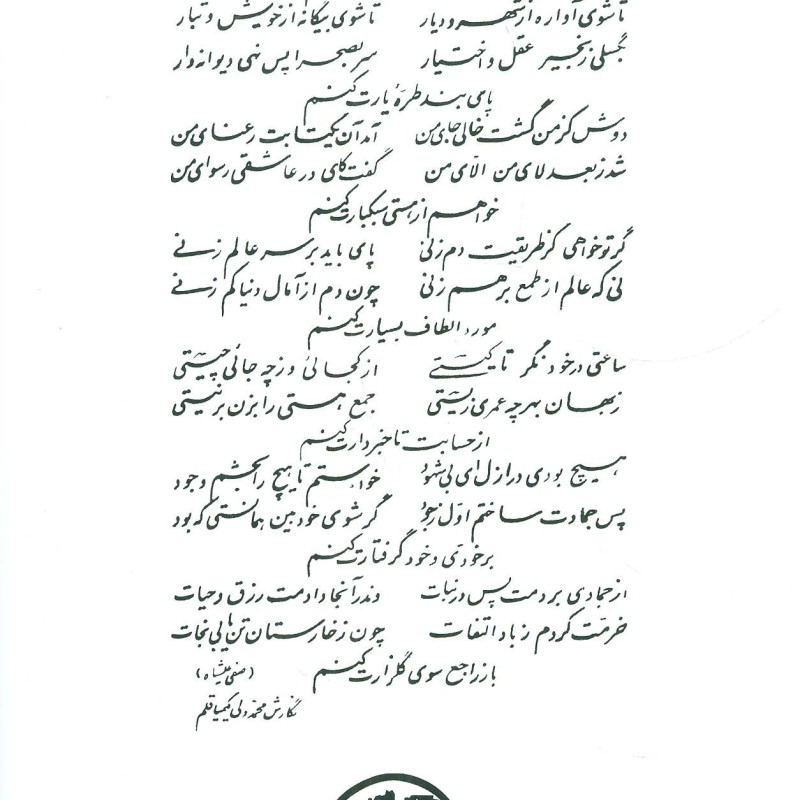 تا شوی آواره از شهر و دیار تا شوی بیگانه از خویش و تبار
بگسلی زنجیر عقل و اختیار سر بصحرا پس نهی دیوانه وار
پای بند طرهٔ یارت کنم
دوش کز من گشت خالی جای من آمد آن یکتا بت رعنای من
شد ز بعد لای من الّای من گفت کای در عاشقی رسوای من
خواهم از هستی سبکبارت کنم
گر تو خواهی کز طریقت دم زنی پای باید بر سر عالم زنی
نی که عالم از طمع بر هم زنی چون دم از آمال دنیا کم زنی
مورد الطاف بسیارت کنم
ساعتی در خود نگر تا کیستی از کجائی و ز چه جائی چیستی
در جهان بهر چه عمری زیستی جمع هستی را بزن بر نیستی
از حسابت تا خبردارت کنم
هیچ بودی در ازل ای بی شهود خواستم تا هیچ را بخشم وجود
پس جمادت ساختم اوّل ز جود گر شوی خودبین همانستی که بود
بر خودی خود گرفتارت کنم
از جمادی بردمت پس در نبات وندر آنجا دادمت رزق و حیات
خرمت کردم ز باد التفات چون ز خارستان تن یابی نجات
باز راجع سوی گلزارت کنم
(صفی علیشاه)
نگارش محمد ولی کیمیا قلم